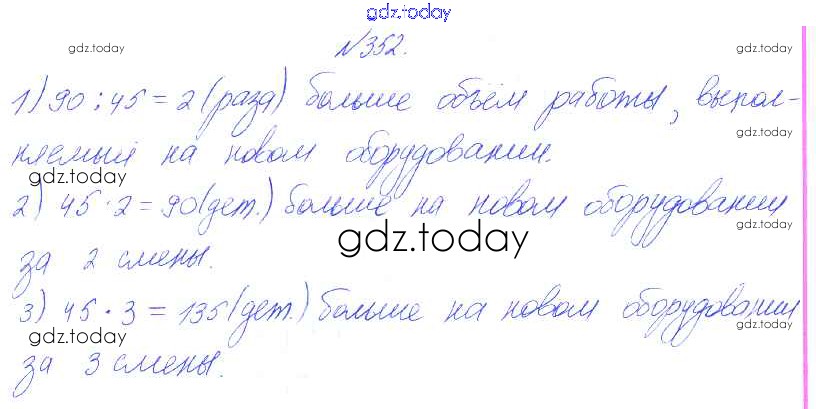 gdz.today
№352.
gdz.today gdz.today
1) 90 : 45 = 2 (раза) больше объём работы, выпол-
gdz.today
няемый на новом оборудовании.
gdz.today
2) 45 · 2 = 90 (дет.) больше на новом оборудовании
gdz.today gdz.today
за 2 смены.
3) 45 · 3 = 135 (дет.) больше на новом оборудовании
gdz.today gdz.today
за 3 смены.